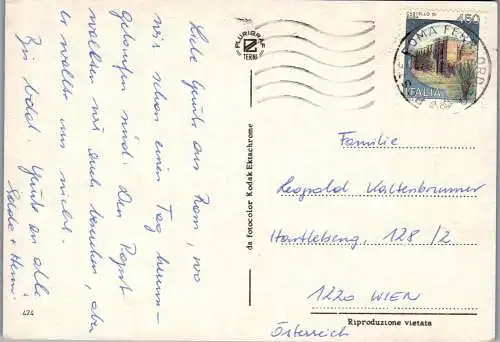 Liebe Grüße aus Rom, wo
wir schon einen Tag herum-
gelaufen sind. Den Papst
wollten wir auch besuchen, aber
er wollte uns nicht.
Bis bald. Grüße an alle
+ Heini
PLURIGRAF
TERNI
474
da fotocolor Kodak Ektachrome
CASTELLO DI
450
ITALIA
ROMA
Familie
Leopold Kaltenbrunner
Hartlebeng. 128/2
1220 WIEN
Österreich
Riproduzione vietata